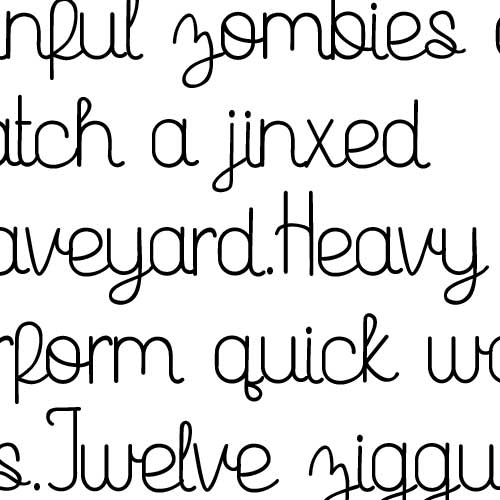 nful zombies
atch a jinxed
aveyard.Heavy
rform quick wa
s.Twelve ziggu